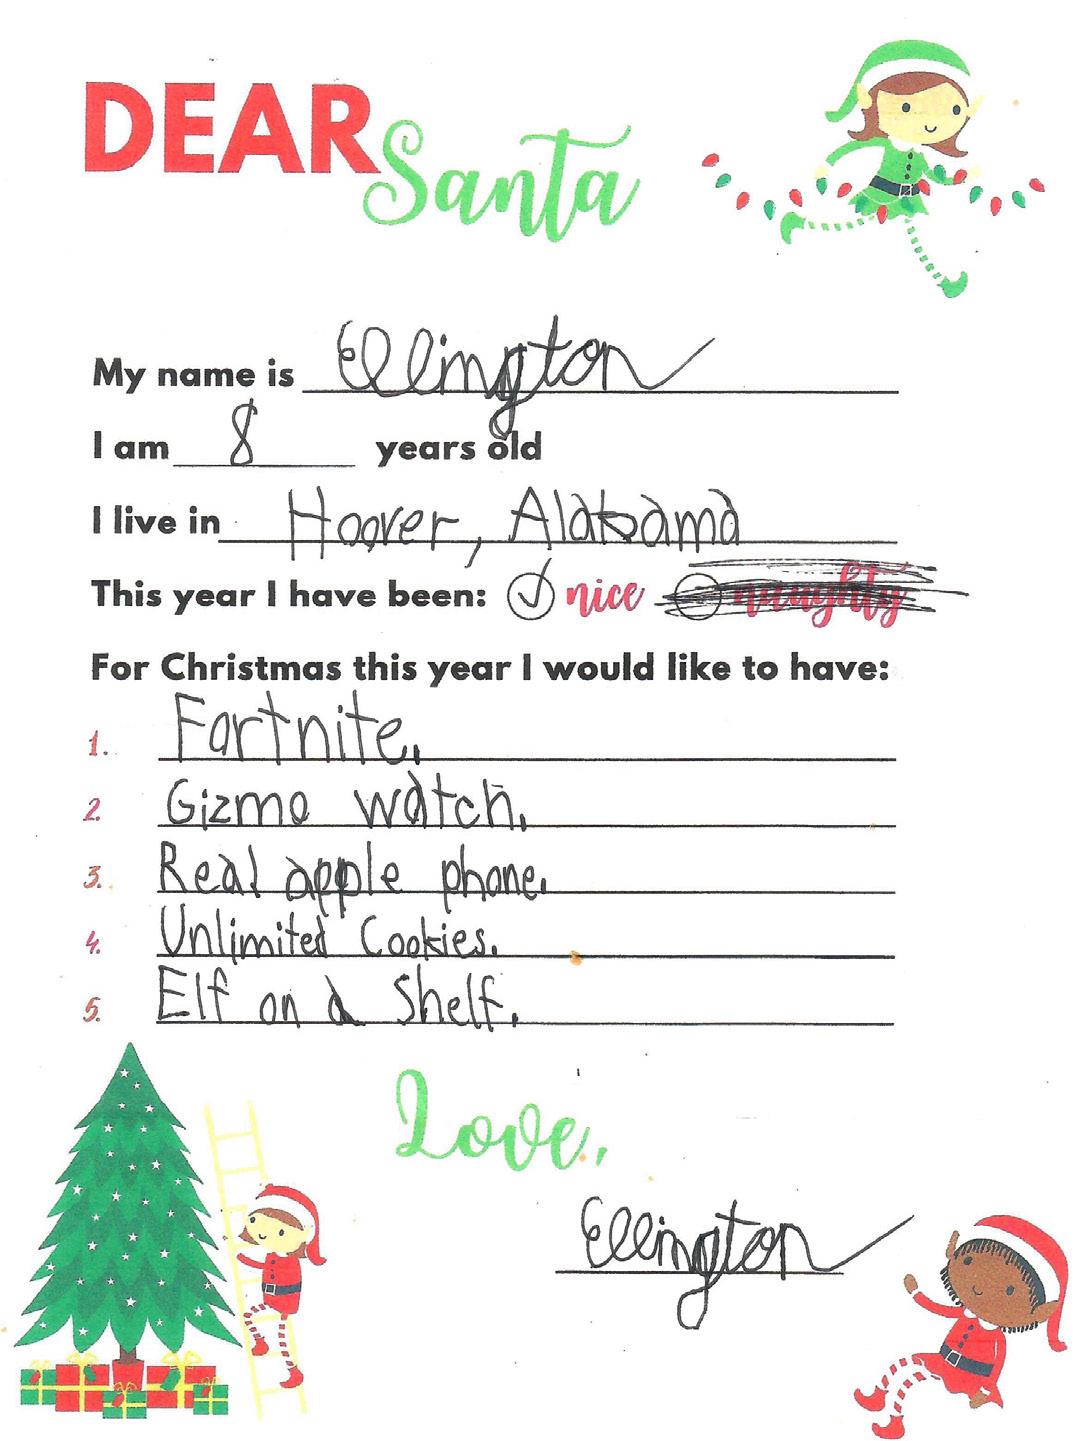 DEAR Santa
My name is Ellington
I am 8 years old
I live in Hoover, Alabama
This year I have been: nice naughty
For Christmas this year I would like to have:
1. Fortnite.
2. Gizmo watch.
3. Real apple phone.
4. Unlimited Cookies.
5. Elf on a Shelf.
Love,
Ellington